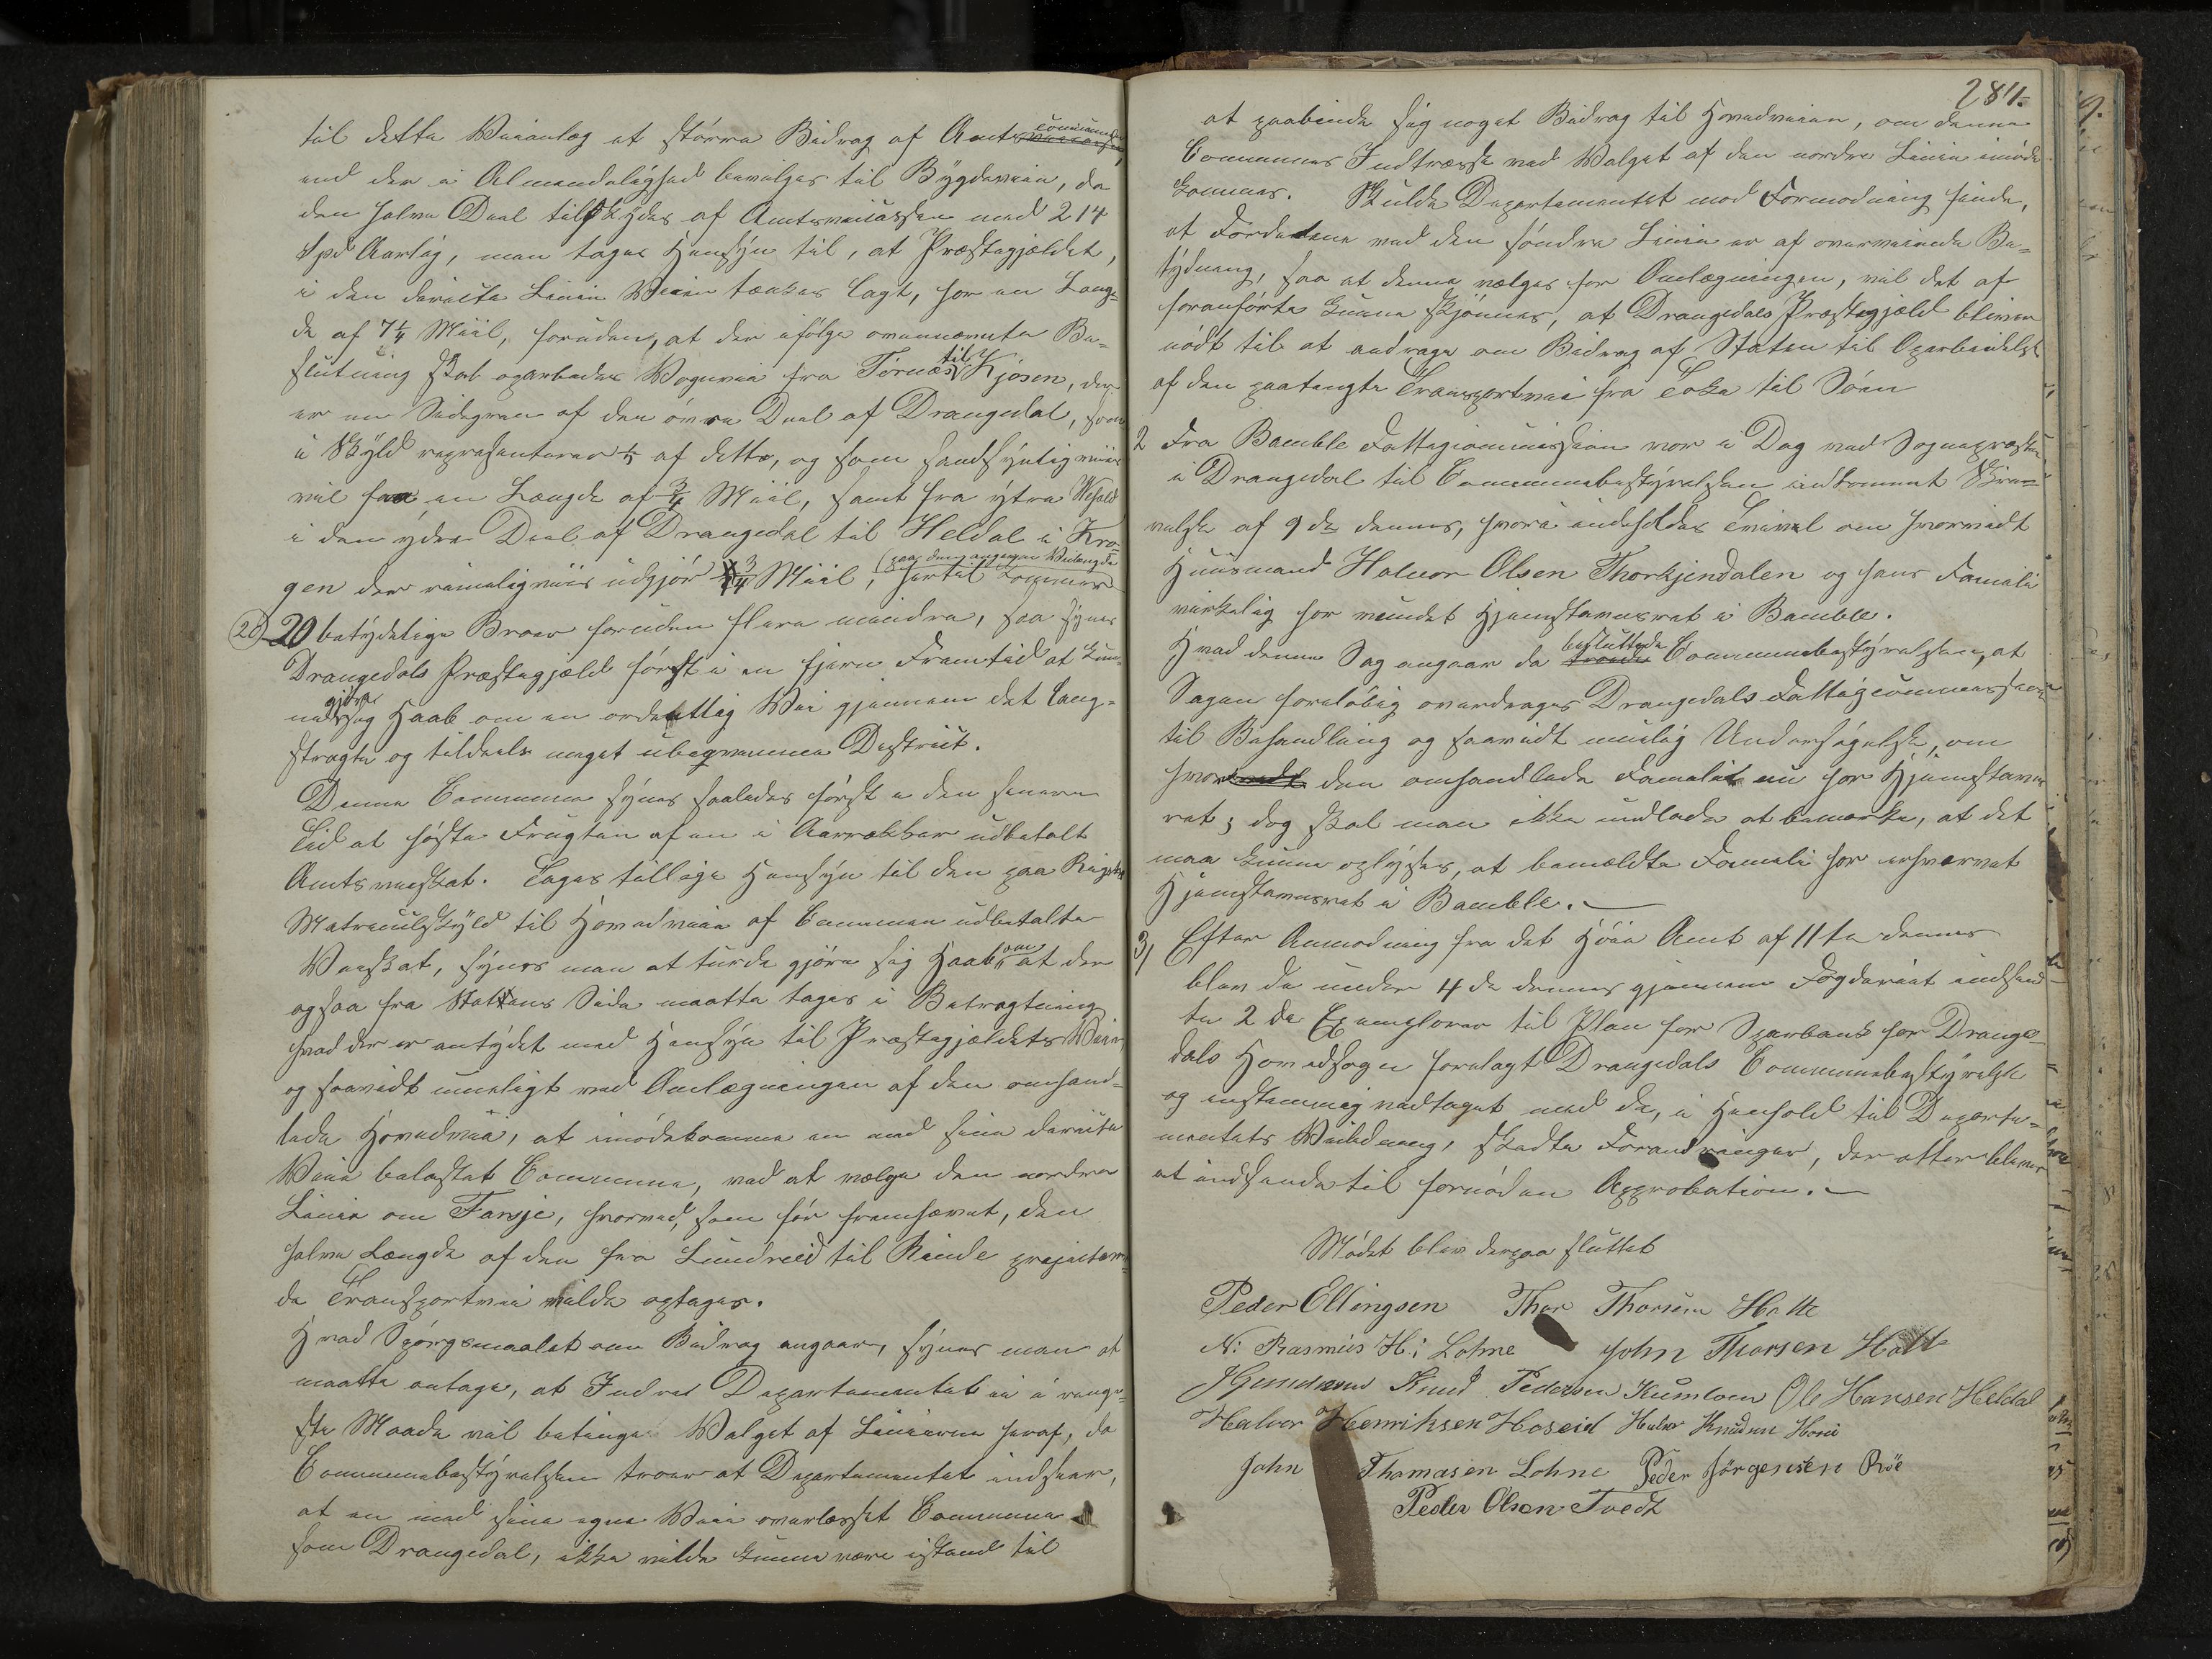 til dette Veianlæg et større Bidrag af Amtscommunen
end der i Almindelighed bevilges til Bygdeveie, da
den halve Deel tilskydes af Amtsveicassen med 214
Spd Aarlig, man tager Hensyn til, at Præstegjeldet,
i den directe Linie Veien tænkes lagt, har en Læng-
de af 7¼ Miil, foruden, at der ifølge ovennævnte Be-
slutning skal oparbeides Vognvei fra Törnæs til Kjösen, der
er en Sidegren af den övre Deel af Drangedal, som
i Skyld repræsenterer ⅓ af dette, og som sandsynligviis
vil faa en Længde af ¾ Miil, samt fra ytre
i den ydre Deel af Drangedal til Heldal i Kra-
gerø der rimeligviis udgjør ¾ Miil, hertil kommer
(paa den angivne Veilængde
20) 20 betydelige Broer foruden flere mindre, saa synes
Drangedals Præstegjæld først i en fjern Fremtid at kun-
ne gjøre sig Haab om en ordentlig Vei gjennem det lang-
stragte og tildeels meget ubeqvemme District.
Denne Commune synes saaledes først i den senere
Tid at høste Frugten af en i Aarrækker udbetalt
Amtsveiskat. Tages tillige Hensyn til den paa Rigets
Matriculskyld til Hovedveie af Communen udbetalte
Veiskat, synes man at turde gjøre sig Haab om at der
ogsaa fra Statens Side maatte tages i Betragtning
hvad der er antydet med Hensyn til Præstegjeldets Veie,
og saavidt mueligt ved Omlægningen af den omhand-
lede Hovedvei, at imødekomme en med sine directe
Veie belastet Commune, ved at vælge den nordre
Linie om Farsje, hvorved, som før fremhævet, den
halve Længde af den fra Lundreid til Rinde projecter-
de Transportvei vilde optages.
Hvad Spørgsmaalet om Bidrag angaar, synes man at
maatte antage, at Indre Departementet ei i ringe-
ste Maade vil betinge Valget af Linierne heraf, da
Communebestyrelsen troer at Departementet indseer,
at en med sine egne Veie overlæsset Commune
som Drangedal, ikke vilde kunne være istand til
281.
at paabinde sig noget Bidrag til Hovedveien, om denne
Communes Indtresse ved Valget af den nordre Linie imøde
kommes. Skulde Departementet mod Formodning finde,
at Fordelene ved den søndre Linie er af overveiende Be-
tydning, saa at denne vælges for Omlægningen, vil det af
foranførte kunne skjønnes, at Drangedals Præstegjæld bliver
nødt til at andrage om Bidrag af Staten til Oparbeidelse
af den paatænkte Transportvei fra Toke til Søen
2 Fra Bamble Fattigcommission var i Dag ved Sognepræsten
i Drangedal til Communebestyrelsen indkommet Skri-
velse af 9de dennes, hvori indeholdes Tvivl om hvorvidt
Huusmand Halvor Olsen Thorkjendalen og hans Familie
virkelig har vundet Hjemstavnsret i Bamble.
Hvad denne Sag angaar da besluttede Communebestyrelsen, at
Sagen foreløbig overdrages Drangedals Fattigcommission
til Behandling og saavidt muelig Undersøgelse, om
hvor den omhandlede Familie nu har Hjemstavns
ret; dog skal man ikke undlade at bemærke, at det
maa kunne oplyses, at bemældte Familie har erhvervet
Hjemstavnsret i Bamble.
3) Efter Anmodning fra det Høie Amt af 11te dennes
blev de under 4de dennes gjennem Fogderiet indsend-
te 2de Exemplarer til Plan for Sparbank for Drange-
dals Hovedsogn forelagt Drangedals Communebestyrelse
og enstemmig vedtaget med de, i Henhold til Departe-
mentets Veiledning, skedte Forandringer, der atter bliver
at indsende til fornøden Approbation.
Mødet blev derpaa sluttet
Peder Ellingsen Thor Thorsen Holte
N: Rasmus H: Lohne John Thorsen Holte
Knud Pedersen Kumloen Ole Hansen Heldal
Halvor Henriksen Hoseid Halvor Knudsen
John Thomasen Lohne Peder Jörgensen Röe
Peder Olsen Tvedt